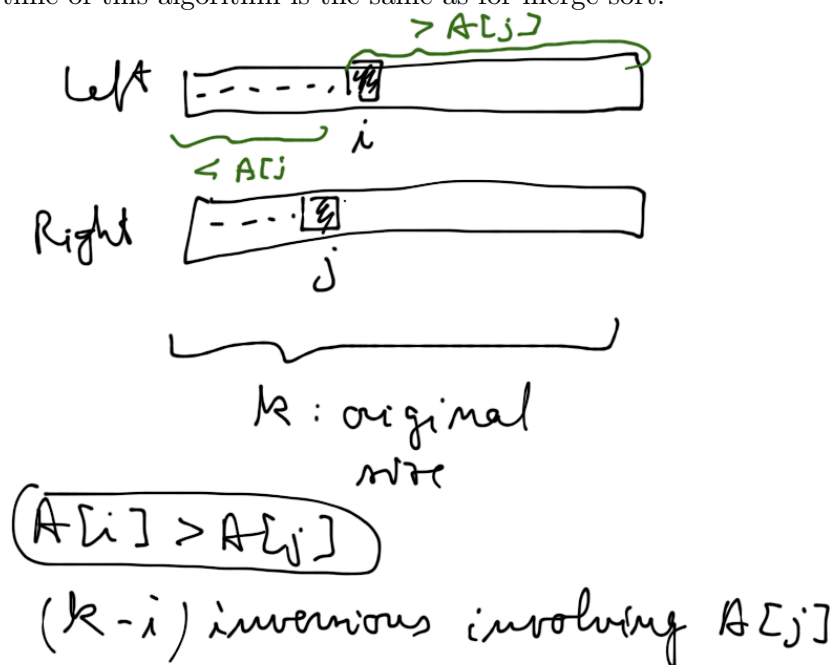 time of this algorithm is the same as for merge sort.
> A[j]
Left
i
< A[j
Right
j
k : original
size
A[i] > A[j]
(k-i) inversions involving A[j]